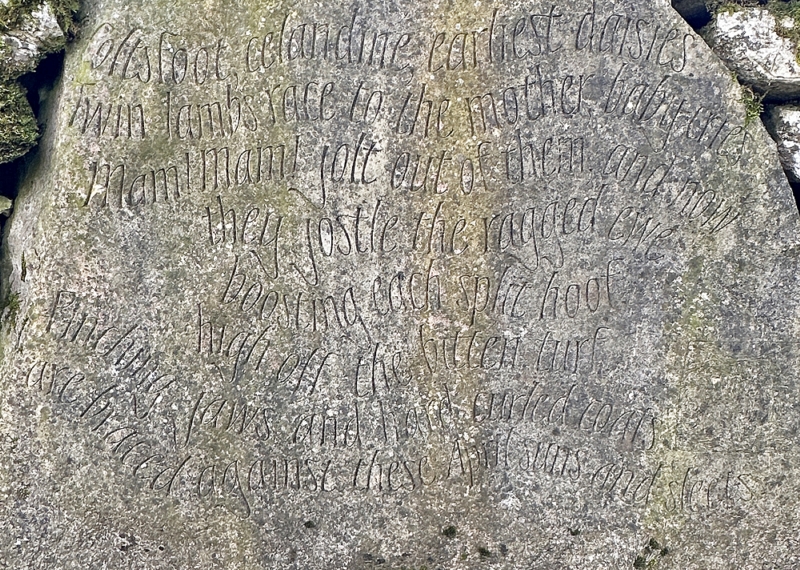 Coltsfoot, celandine, earliest daisies
Twin lambs race to the mother, baby cries
Mam! Mam! jolt out of them and now
they jostle the ragged ewe
boosting each split hoof
high off the bitten turf
Pinching jaws and hard curled coats
are braced against these April suns and sleets